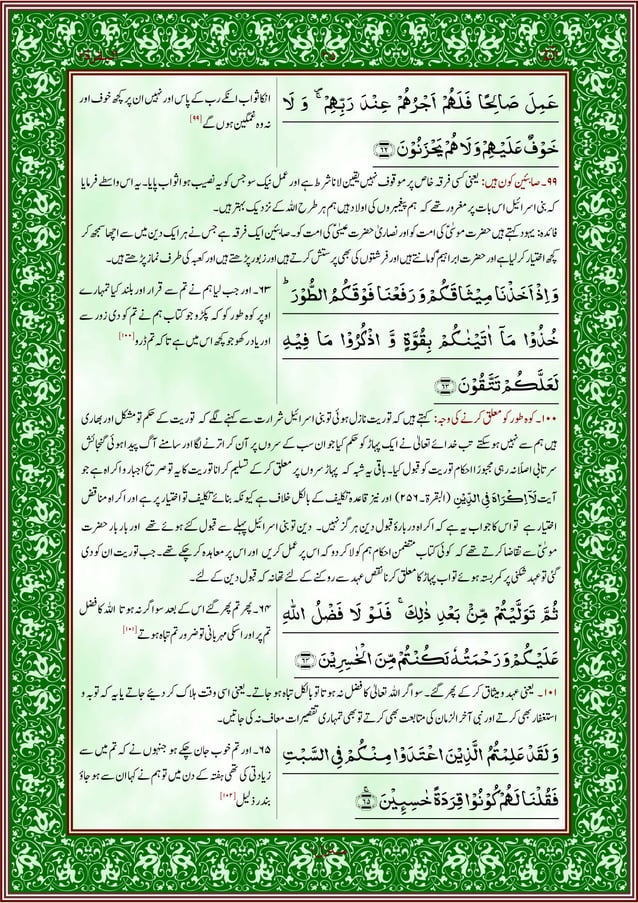 البقرۃ ۲
۳۵
الٓمّٓ ۱
عَمِلَ صَالِحًا فَلَهُمْ اَجْرُهُمْ عِنْدَ رَبِّهِمْ ۚ وَ لَا
خَوْفٌ عَلَيْهِمْ وَ لَا هُمْ يَحْزَنُوْنَ ﴿۶۲﴾
انکا ثواب انکے رب کے پاس اور نہیں ان پر کچھ خوف اور
نہ وہ غمگین ہوں گے [۹۹]
۹۹۔ صابئین کون ہیں: یعنی کسی فرقہ خاص پر موقوف نہیں یقین لانا شرط ہے اور عمل نیک سو جس کو یہ نصیب ہوا ثواب پایا۔ یہ اس واسطے فرمایا
کہ بنی اسرائیل اس بات پر مغرور تھے کہ ہم پیغمبروں کی اولاد ہیں ہم ہر طرح اللہ کے نزدیک بہتر ہیں۔
فائدہ: یہود کہتے ہیں حضرت موسیٰؑ کی امت کو اور نصاریٰ حضرت عیسیٰؑ کی امت کو۔ صابئین ایک فرقہ ہے جس نے ہر ایک دین میں سے اچھا سمجھ کر
کچھ اختیار کر لیا ہے اور حضرت ابراہیمؑ کو مانتے ہیں اور فرشتوں کی بھی پرستش کرتے ہیں اور زبور پڑھتے ہیں اور کعبہ کی طرف نماز پڑھتے ہیں۔
وَ اِذْ اَخَذْنَا مِيْثَاقَكُمْ وَ رَفَعْنَا فَوْقَكُمُ الطُّوْرَ ؕ
خُذُوْا مَاۤ اٰتَيْنٰكُمْ بِقُوَّةٍ وَّ اذْكُرُوْا مَا فِيْهِ
لَعَلَّكُمْ تَتَّقُوْنَ ﴿۶۳﴾
۶۳۔ اور جب لیا ہم نے تم سے قرار اور بلند کیا تمہارے
اوپر کوہ طور کو کہ پکڑو جو کتاب ہم نے تم کو دی زور سے
اور یاد رکھو جو کچھ اس میں ہے تاکہ تم ڈرو [۱۰۰]
۱۰۰۔ کوہ طور کو معلق کرنے کی وجہ: کہتے ہیں کہ توریت نازل ہوئی تو بنی اسرائیل شرارت سے کہنے لگے کہ توریت کے حکم تو مشکل اور بھاری
ہیں ہم سے نہیں ہو سکتے تب خدائے تعالیٰ نے ایک پہاڑ کو حکم کیا جو ان سب کے سروں پر آن کر اترنے لگا اور سامنے آگ پیدا ہوئی گنجائش
سرتابی اصلاً نہ رہی مجبوراً احکام توریت کو قبول کیا۔ باقی یہ شبہ کہ پہاڑ سروں پر معلق کر کے تسلیم کرانا توریت کا یہ تو صریح اجبار و اکراہ ہے جو
آیت لَاۤ اِكْرَاهَ فِى الدِّيْنِ (البقرۃ۔۲۵۶) اور نیز قاعدہ تکلیف کے بالکل خلاف ہے کیونکہ بنائے تکلیف تو اختیار پر ہے اور اکراہ مناقض
اختیار ہے تو اس کا جواب یہ ہے کہ اکراہ دربارۂ قبول دین ہر گز نہیں۔ دین تو بنی اسرائیل پہلے سے قبول کئے ہوئے تھے اور بار بار حضرت
موسیٰؑ سے تقاضا کرتے تھے کہ کوئی کتاب متضمن احکام ہم کو لا کر دو کہ اس پر عمل کریں اور اس پر معاہدہ کر چکے تھے۔ جب توریت ان کو دی
گئی تو عہد شکنی پر کمر بستہ ہوئے تو اب پہاڑ کا معلق کرنا نقض عہد سے روکنے کے لئے تھا نہ کہ قبول دین کے لئے۔
ثُمَّ تَوَلَّيْتُمْ مِّنْۢ بَعْدِ ذٰلِكَ ۚ فَلَوْ لَا فَضْلُ اللّٰهِ
عَلَيْكُمْ وَ رَحْمَتُهٗ لَكُنْتُمْ مِّنَ الْخٰسِرِيْنَ ﴿۶۴﴾
۶۴۔ پھر تم پھر گئے اس کے بعد سو اگر نہ ہوتا اللہ کا فضل
تم پر اور اسکی مہربانی تو ضرور تم تباہ ہوتے [۱۰۱]
۱۰۱۔ یعنی عہد و میثاق کر کے پھر گئے۔ سو اگر اللہ تعالیٰ کا فضل نہ ہوتا تو بالکل تباہ ہو جاتے۔ یعنی اسی وقت ہلاک کر دیئے جاتے یا یہ کہ توبہ و
استغفار بھی کرتے اور نبی آخر الزماں کی متابعت بھی کرتے تو بھی تمہاری تقصیرات معاف نہ کی جاتیں۔
وَ لَقَدْ عَلِمْتُمُ الَّذِيْنَ اعْتَدَوْا مِنْكُمْ فِى السَّبْتِ
فَقُلْنَا لَهُمْ كُوْنُوْا قِرَدَةً خٰسِـِٕيْنَ ﴿۶۵﴾
۶۵۔ اور تم خوب جان چکے ہو جنہوں نے کہ تم میں سے
زیادتی کی تھی ہفتہ کے دن میں تو ہم نے کہا ان سے ہو جاؤ
بندر ذلیل [۱۰۲]